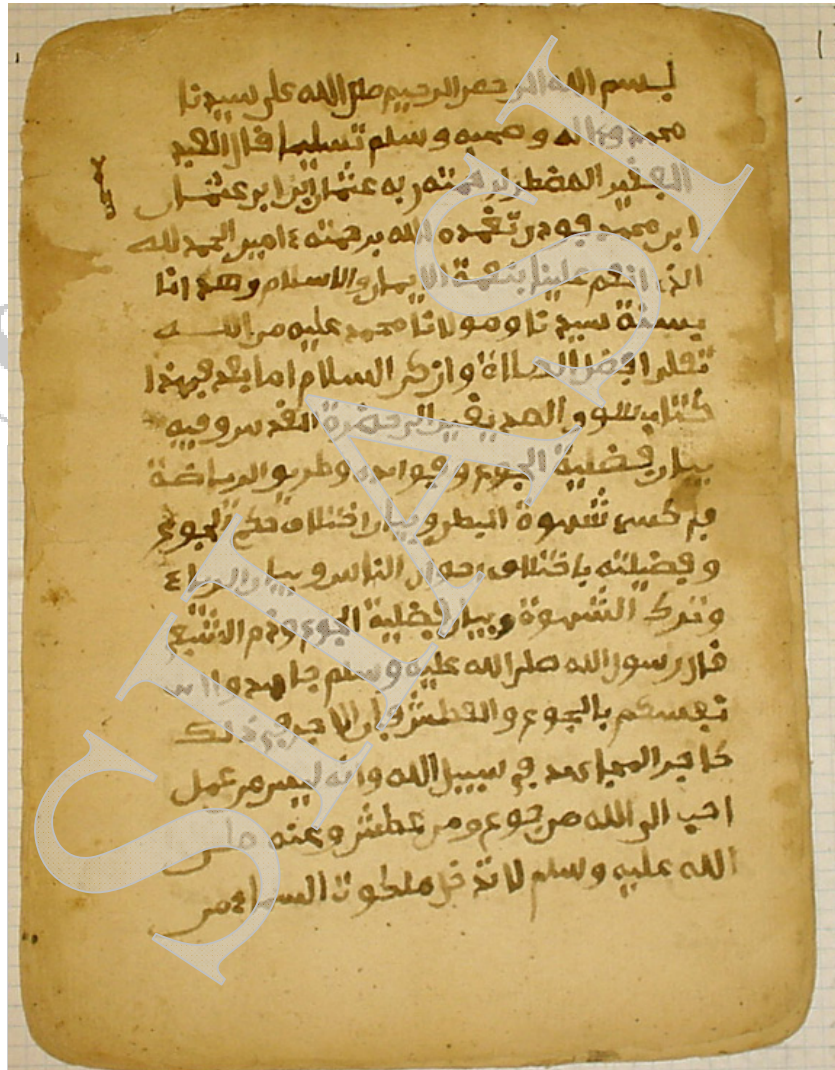 بسم الله الرحمن الرحيم صلى الله على سيدنا
محمد وءاله وصحبه وسلم تسليما قال العبد
الفقير المضطر لرحمة ربه عثمان ابن عثمان
ابن محمد فودي تغمده الله برحمته ءامين الحمد لله
الذي انعم علينا بنعمة الايمان والاسلام وهدانا
بسنة سيدنا ومولانا محمد عليه من الله
تعلى افضل الصلاة وازكى السلام اما بعد فهذا
كتاب الى حضرة القدس وفيه
بيان فضلية الجوع وفوايده وطريق الرياضة
في كسر شهوة البطن وبيان اختلاف حكم الجوع
وفضيلته باختلاف احوال الناس وبيان الرياء
وترك الشهوة وبيان فضلية الجوع وذم الشبع
قال رسول الله صلى الله عليه وسلم جاهدوا ان
نفسكم بالجوع والعطش فإن الاجر في ذلك
كاجر المجاهد في سبيل الله وانه ليس من عمل
احب الى الله من جوع ومن عطش وعنه صلى
الله عليه وسلم لا تدخل ملكوت السماء من
SHASI